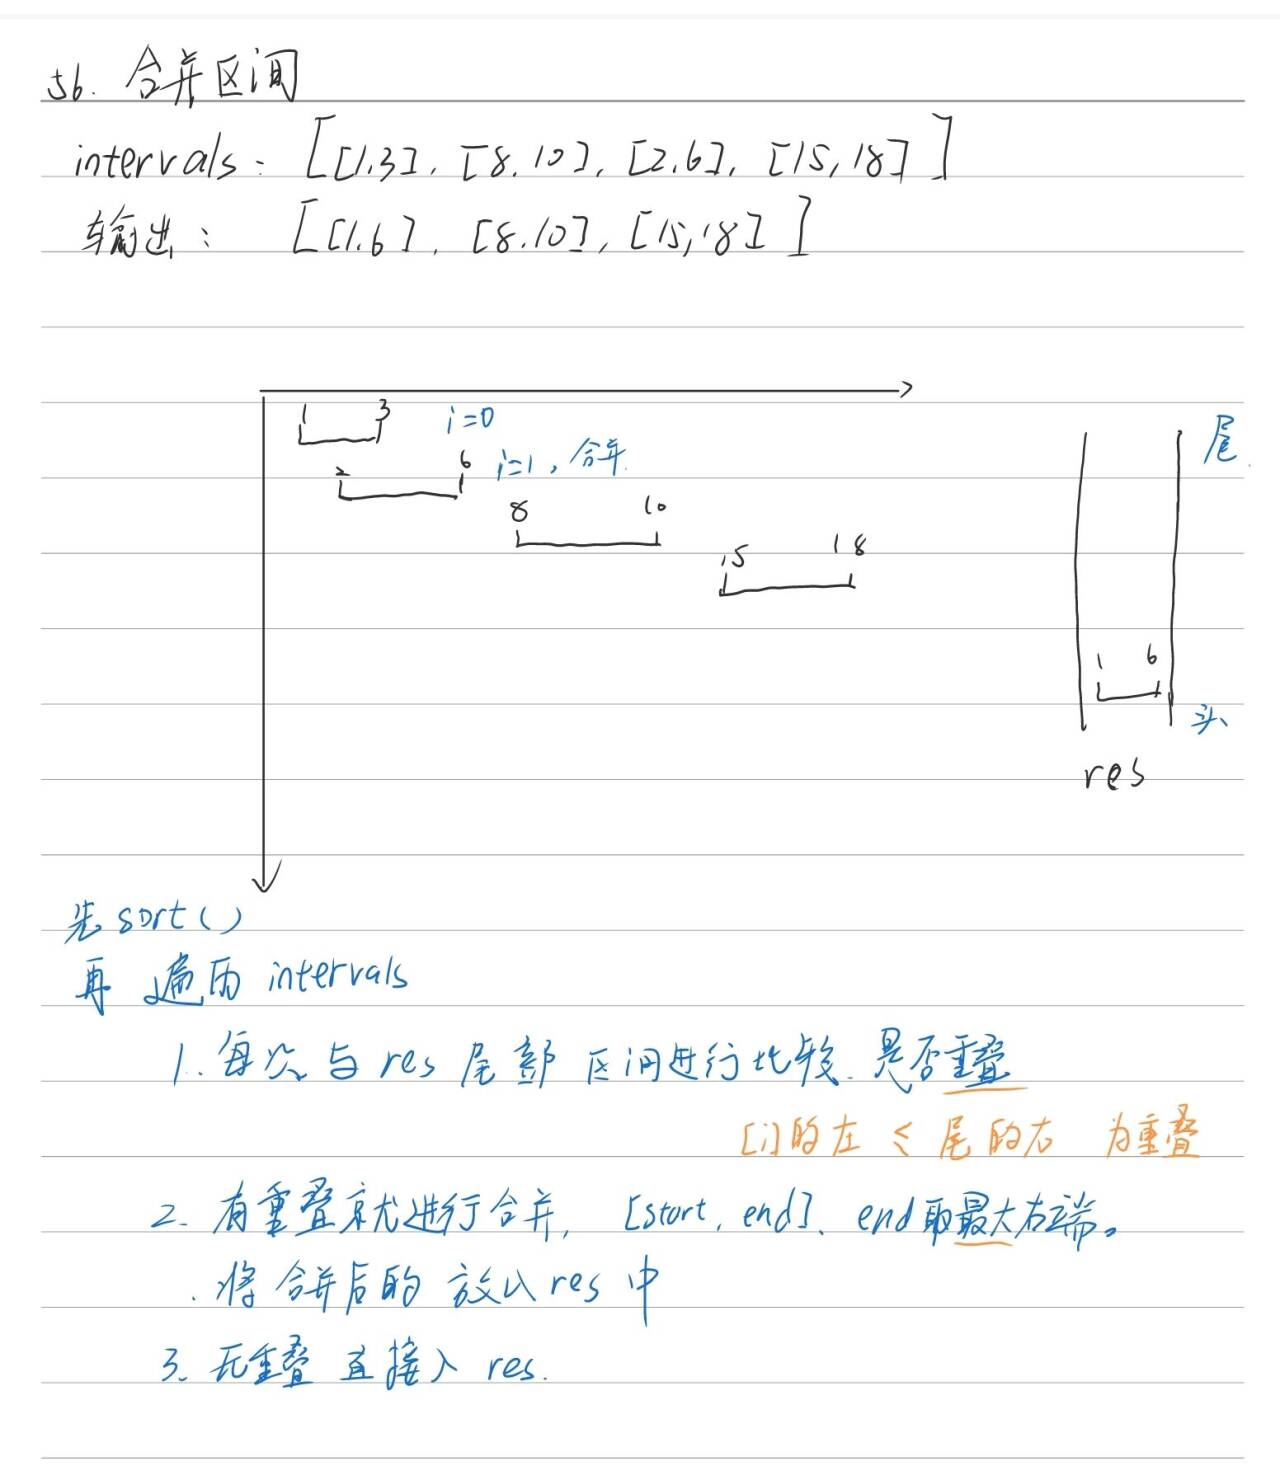 56. 合并区间
intervals: [[1,3], [8,10], [2,6], [15,18]]
输出: [[1,6], [8,10], [15,18]]
1 3 i=0
2 6 i=1, 合并
8 10
15 18
尾
1 6
头
res
先 sort()
再 遍历 intervals
1. 每次 与 res 尾部 区间进行比较. 是否重叠
[i]的左 ≤ 尾的右 为重叠
2. 有重叠就进行合并, [start, end]、end取最大右端。
. 将合并后的 放入 res 中
3. 无重叠 直接入 res.